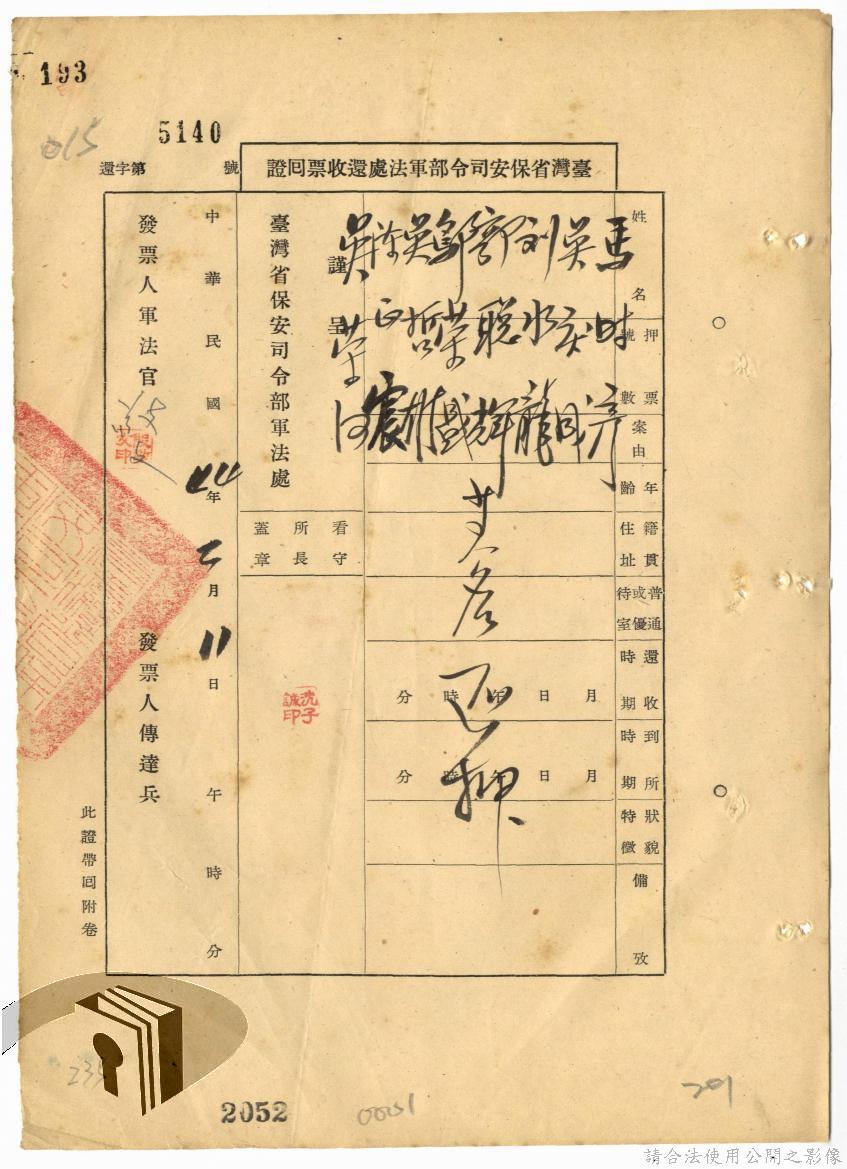 193
015
5140
臺灣省保安司令部軍法處還收票囘證
還字第 號
姓名
押票號數
案由
年齡
籍貫住址
普通或優待室
還收時期
到所時期
狀貌特徵
備攷
馬時彥
吳炎成
刘水龍
聰輝
鄭荣盛
吳哲
正震
吳荣
共八名
还押
月 日 年 時 分
月 日 年 時 分
謹呈
臺灣省保安司令部軍法處
看守所所長蓋章
沈子誠印
中華民國 44 年 二 月 11 日 午 時 分
發票人軍法官
發票人傳達兵
此證帶囘附卷
235
2052
00051
201
請合法使用公開之影像